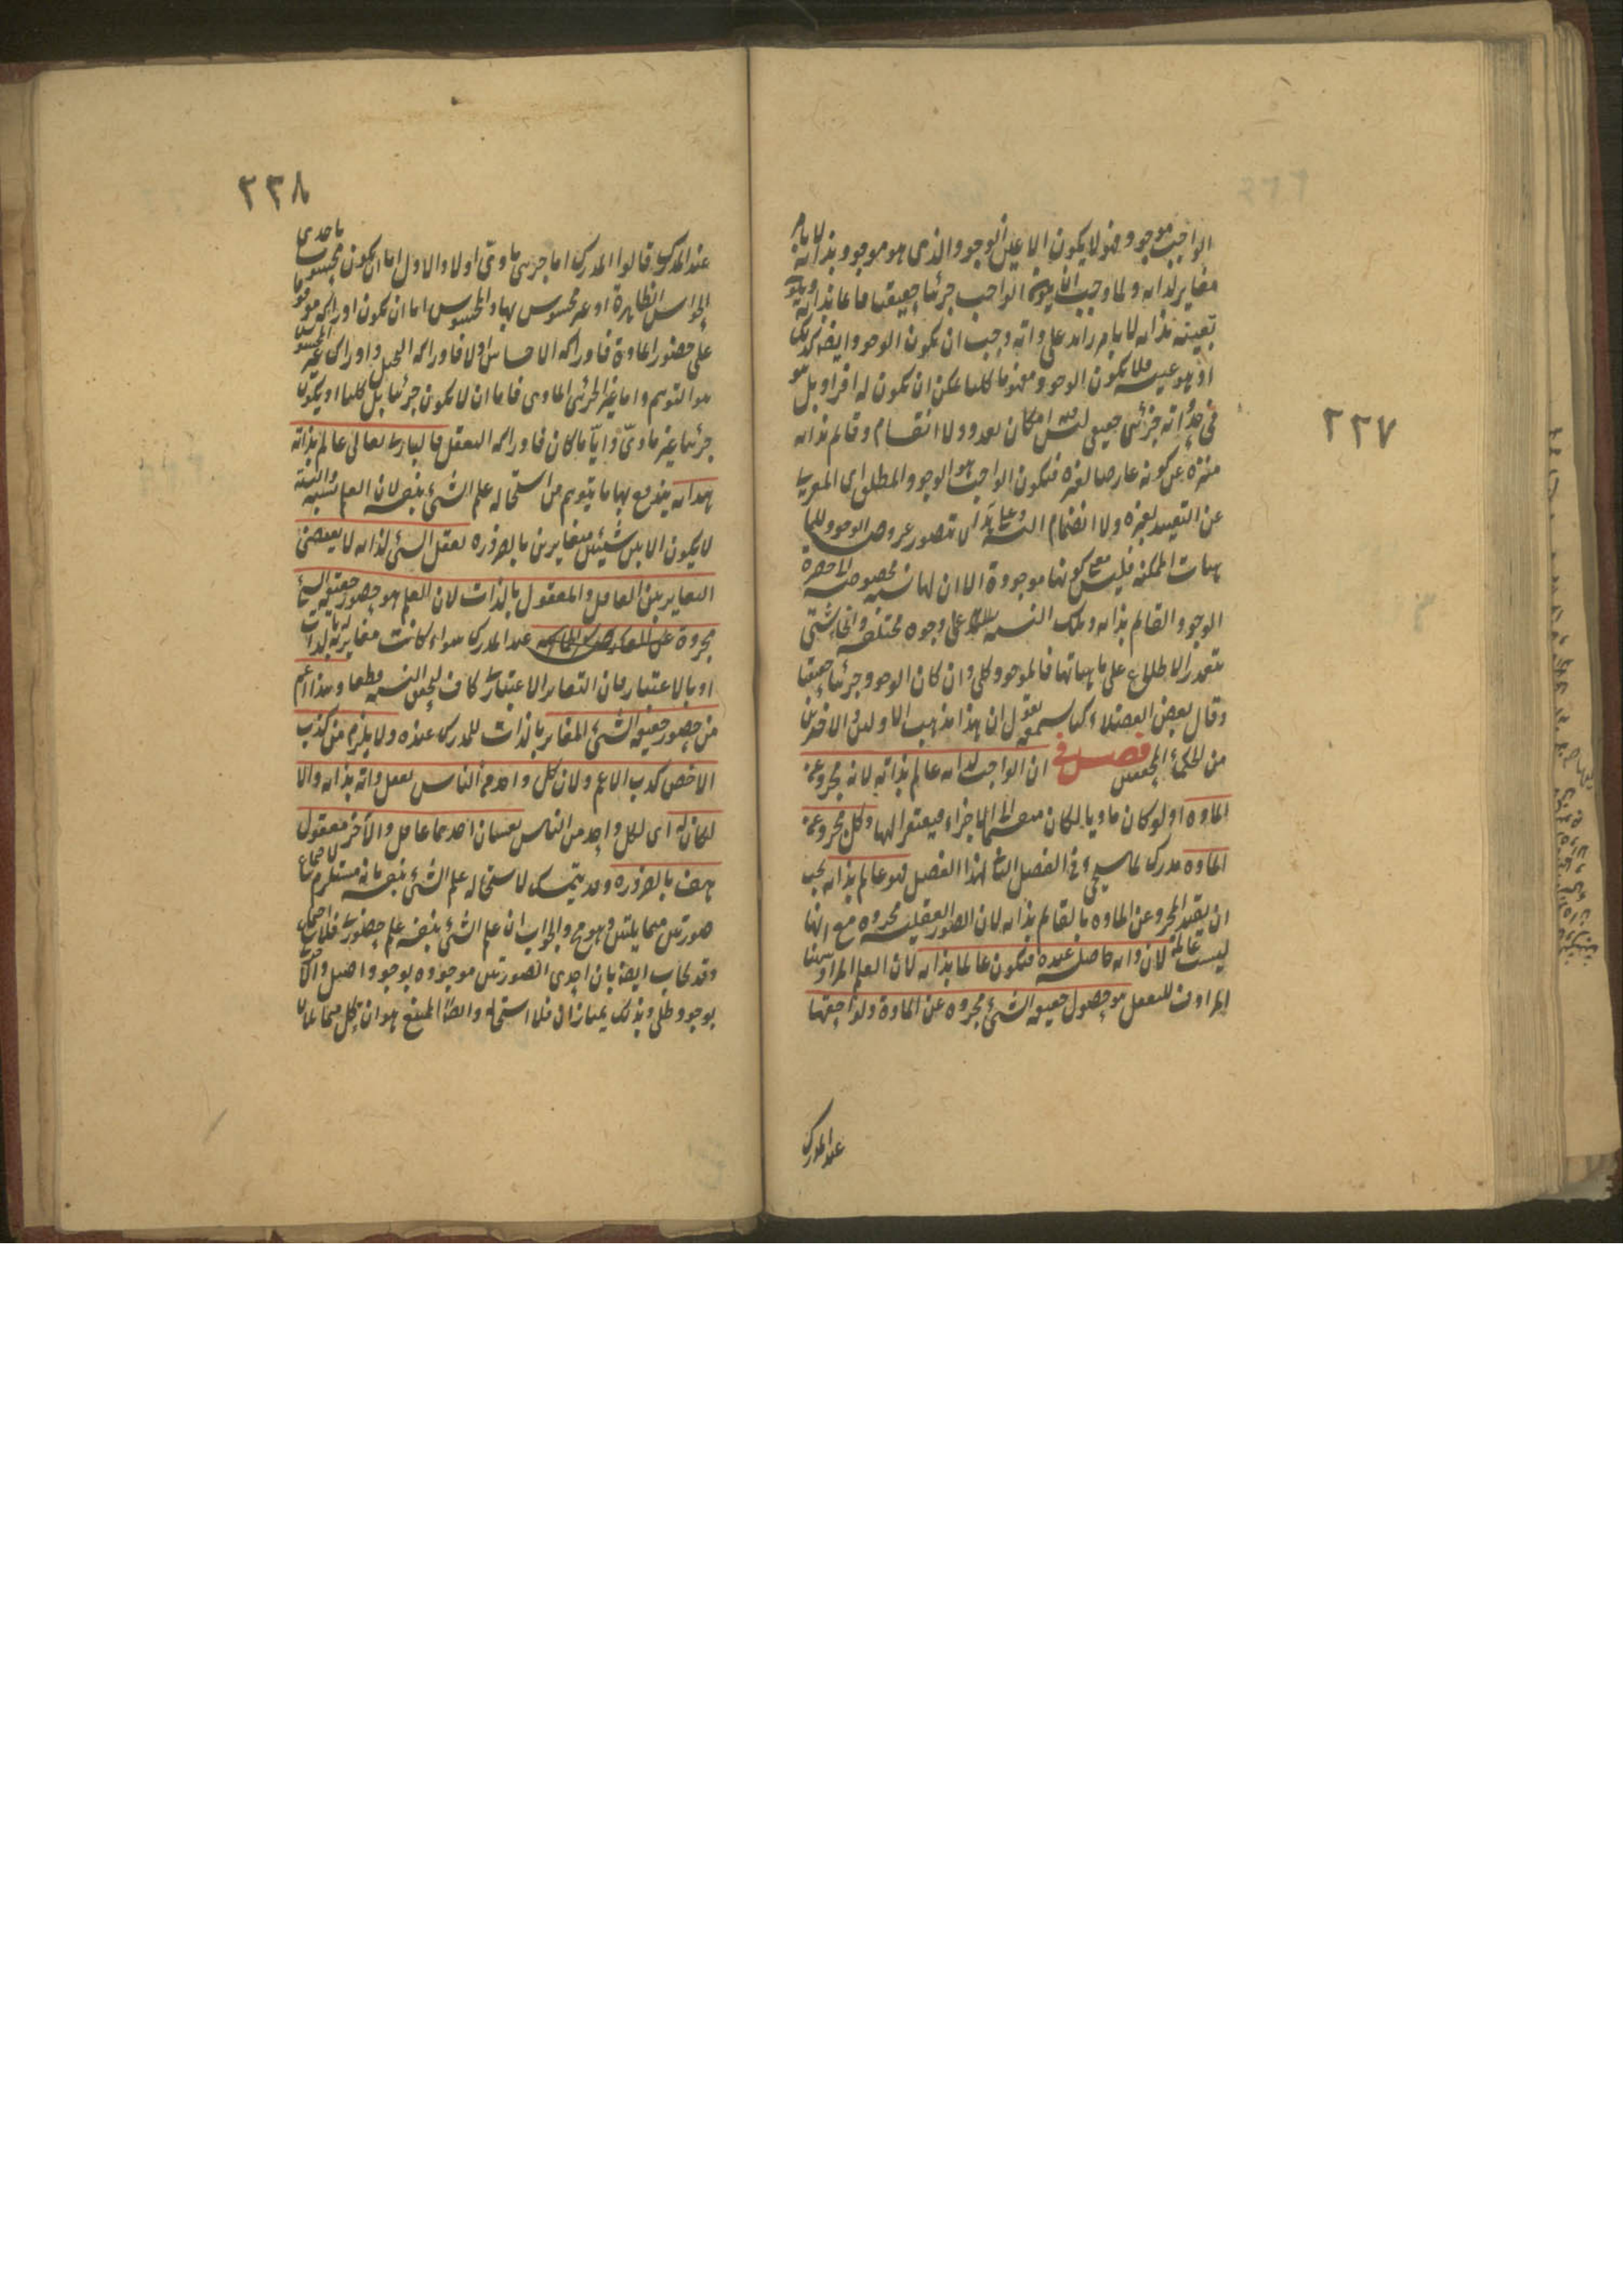 ٢٢٧
الواجب موجود فهو لا يكون الا عين الوجود الذى هو موجود بذاته لا بامر
مغاير لذاته ولما وجب ان يكون الواجب جزئيا حقيقيا قائما بذاته ويكون
تعينه بذاته لا بامر زائد على ذاته وجب ان يكون الوجود ايضا كذلك
اذ هو عينه فلا يكون الوجود مفهوما كليا يمكن ان يكون له افراد بل هو
فى حد ذاته جزئى حقيقى ليس فيه امكان تعدد ولا انقسام وقائم بذاته
منزه عن كونه عارضا لغيره فيكون الواجب هو الوجود المطلق اى المعرى
عن التقييد بغيره ولا انضمام اليه وعلى هذا لا يتصور عروض الوجود للما
هيات الممكنة فليس معنى كونها موجودة الا ان لها نسبة مخصوصة الى حضرة
الوجود القائم بذاته وتلك النسبة على وجوه مختلفة وانحاء شتى
يتعذر الاطلاع على ماهياتها فالموجود كلى وان كان الوجود جزئيا حقيقيا
وقال بعض الفضلاء كنا نسمعه يقول ان هذا مذهب الاولين والاخرين
من الحكماء المحققين فصل فى ان الواجب لذاته عالم بذاته لانه مجرد عن
المادة اذ لو كان ماديا لكان منقسما الى الاجزاء فيفتقر اليها وكل مجرد عن
المادة مدرك لما سيجىء فى الفصل التالى لهذا الفصل فهو عالم بذاته يجب
ان يقيد المجرد عن المادة بالقائم بذاته لان الصور العقلية مجردة مع انها
ليست عالمة لان ذاته حاصلة عنده فيكون عالما بذاته لان العلم المراد ههنا
المرادف للتعقل هو حصول حقيقة الشىء مجردة عن المادة ولواحقها
عند المدرك
٢٢٨
عند المدرك قالوا المدرك اما جزئى مادى او لا والاول اما ان يكون محسوسا باحدى
الحواس الظاهرة او غير محسوس بها والمحسوس اما ان يكون ادراكه موقوفا
على حضور المادة فادراكه الاحساس او لا فادراكه التخيل وادراك غير المحسوس
هو التوهم واما غير الجزئى المادى فاما ان لا يكون جزئيا بل كليا او يكون
جزئيا غير مادى وايا ما كان فادراكه التعقل فالبارى تعالى عالم بذاته
هداية يندفع بها ما يتوهم من استحالة علم الشىء بنفسه لان العلم نسبة والنسبة
لا يكون الا بين شيئين متغايرين بالضرورة تعقل الشىء لذاته لا يقتضى
التغاير بين العاقل والمعقول بالذات لان العلم هو حضور حقيقة الشىء
مجردة عن عند المدرك سواء كانت مغايرة له بالذات
او بالاعتبار فان التغاير الاعتبارى كاف لتحقق النسبة قطعا وهذا اعم
من حضور حقيقة الشىء المغاير بالذات للمدرك عنده ولا يلزم من كذب
الاخص كذب الاعم ولان كل واحد من الناس يعقل ذاته بذاته والا
لكان له اى لكل واحد من الناس نفسان احدهما عاقل والاخر معقول
هف بالضرورة وقد يتمسك لاستحالة علم الشىء بنفسه بانه مستلزم لاجتماع
صورتين متماثلتين وهو مح والجواب ان علم الشىء بنفسه علم حضورى فلا اجتماع
وقد يجاب ايضا بان احدى الصورتين موجودة بوجود اصيل والاخرى
بوجود ظلى وبذلك يمتازان فلا استحالة وايضا الممتنع هو ان يحل متماثلان